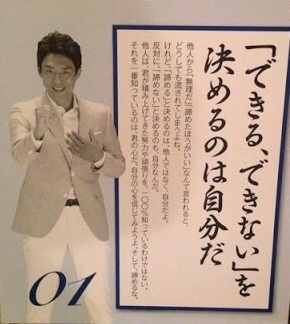 「できる、できない」を
決めるのは自分だ
他人から「無理だ」「諦めたほうがいい」なんて言われると、
どうしても流されてしまうよね。
けれど、「諦める」と決めるのは、他人ではなく、自分だよ。
反対に、「諦めない」と決めるのも、自分なんだ。
他人は、君が積み上げてきた努力や頑張りを、一〇〇%知っているわけではない。
それを一番知っているのは、君の心だ。自分の心を信じてみようよ。そして、諦めるな。
01